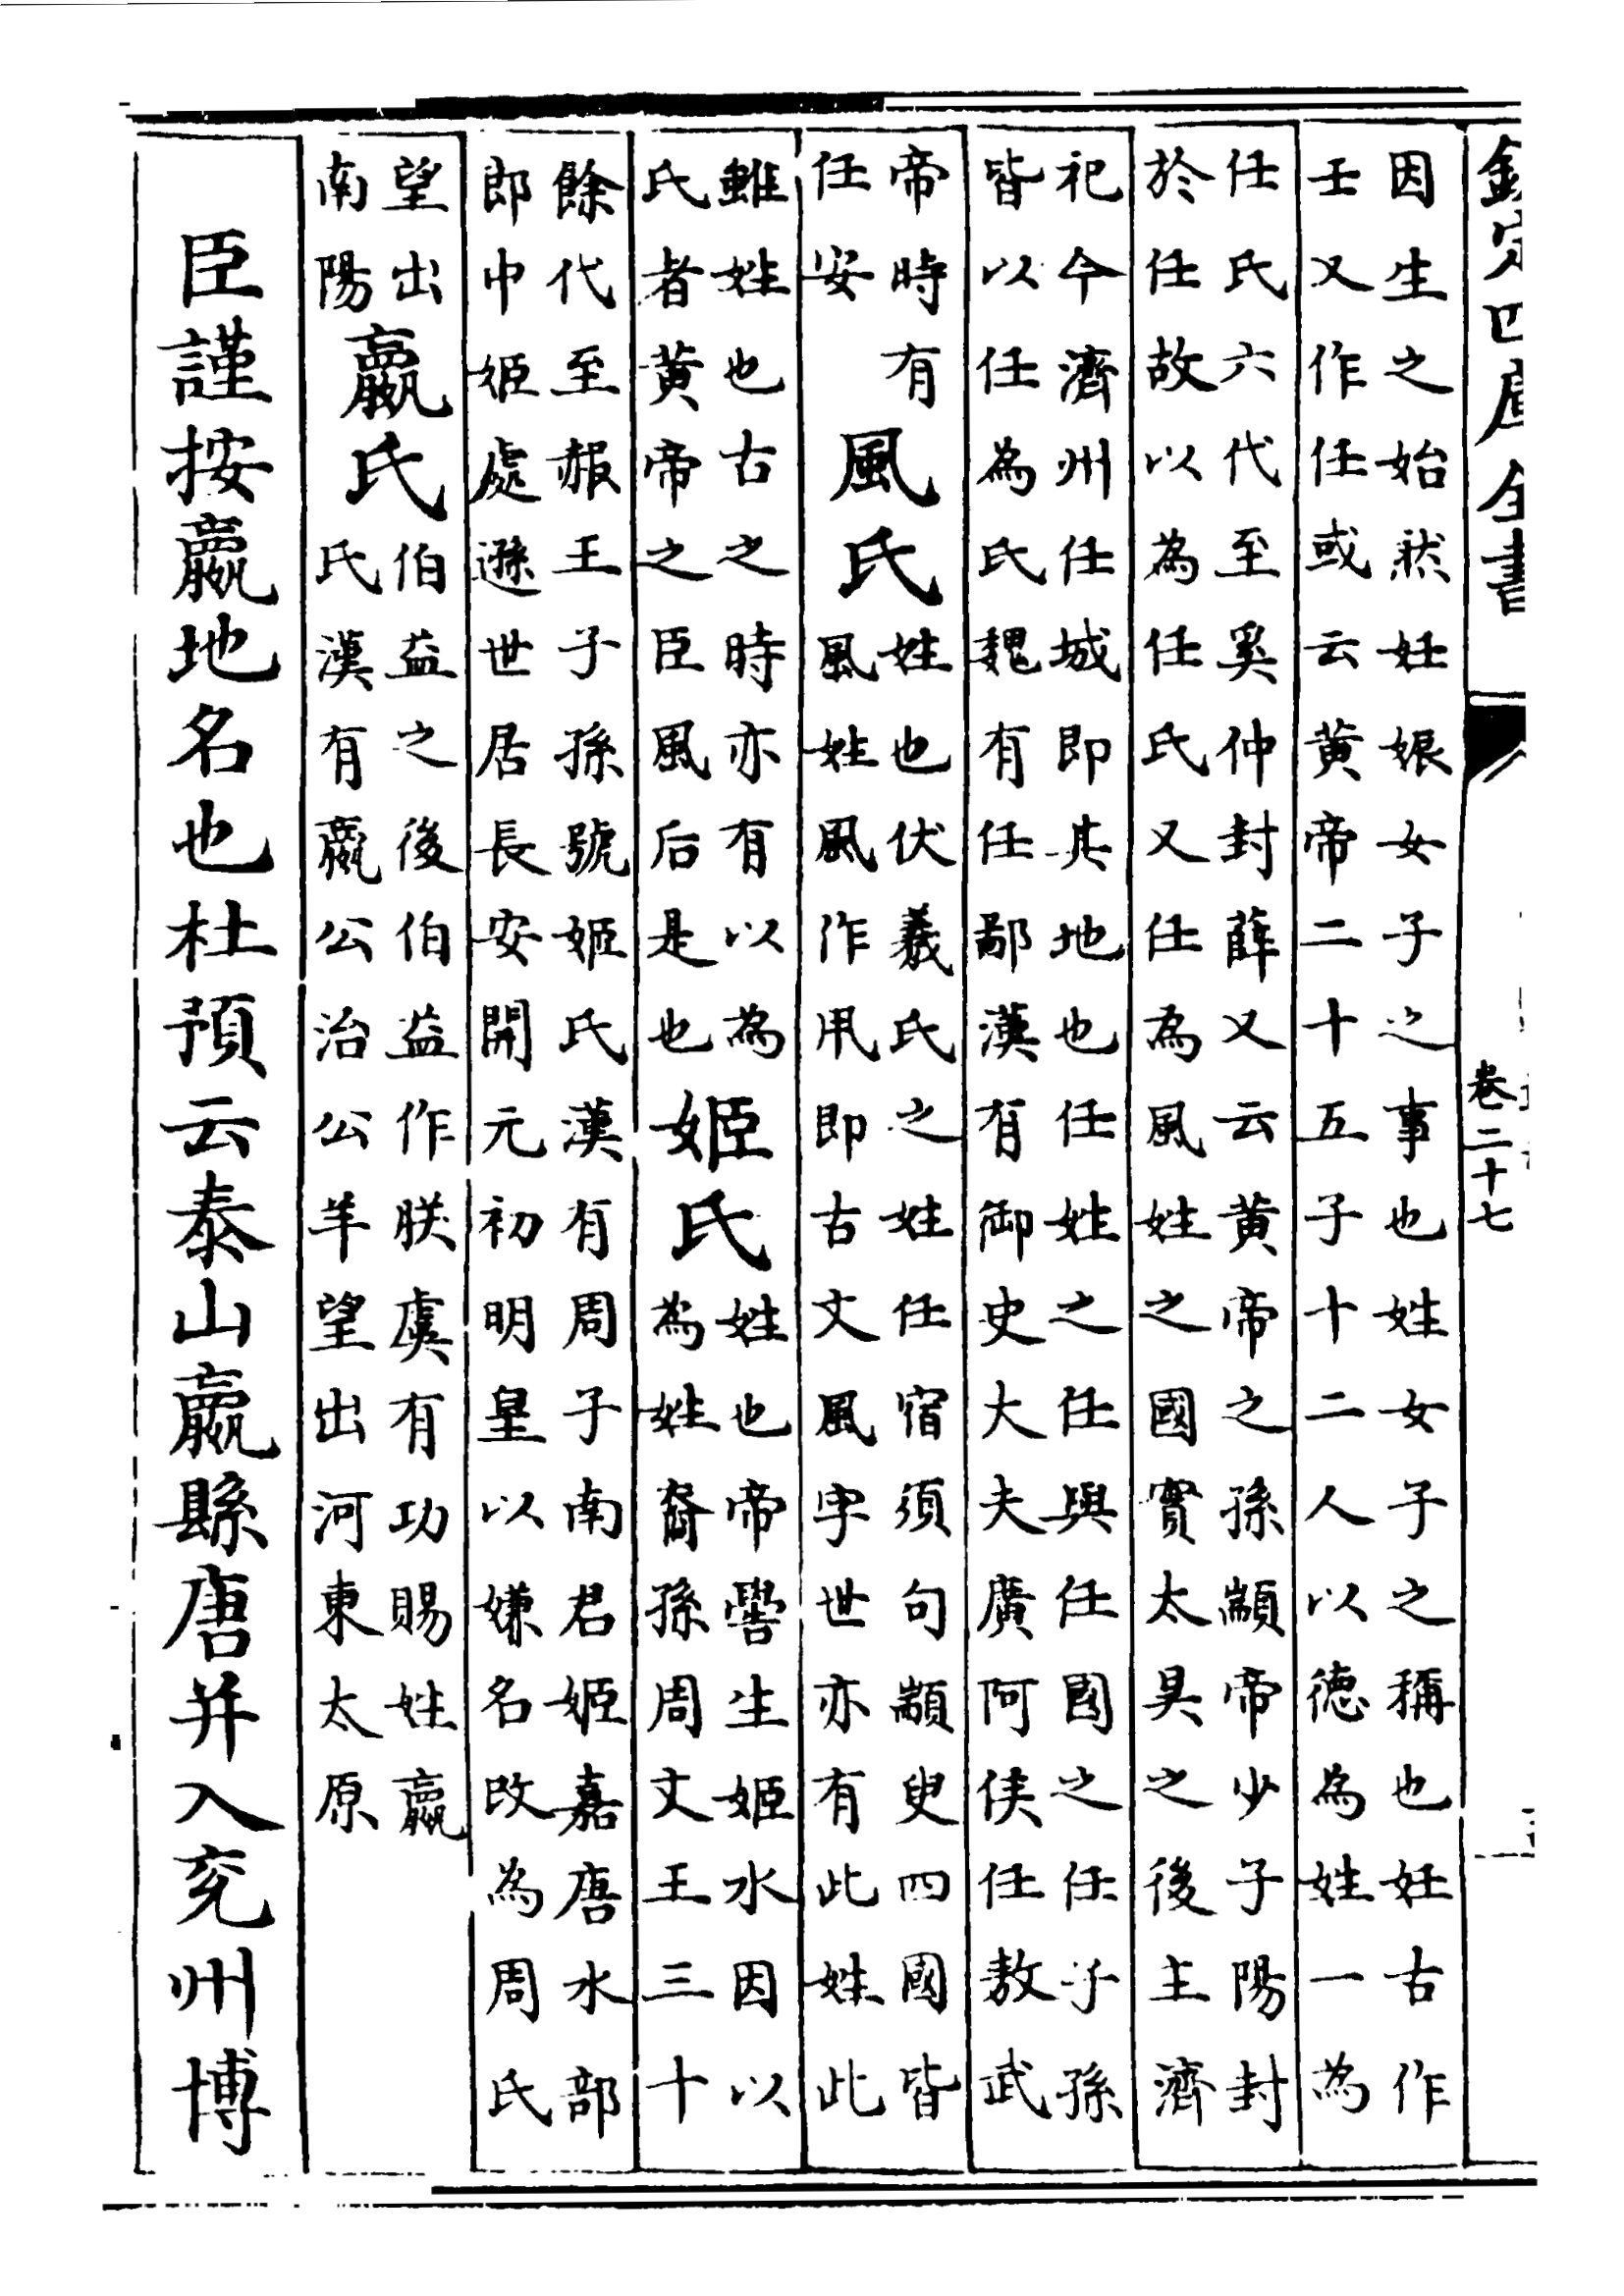 欽定四庫全書
卷二十七
因生之始然妊娠女子之事也姓女子之稱也妊古作
壬又作任或云黄帝二十五子十二人以徳為姓一為
任氏六代至奚仲封薛又云黄帝之孫顓帝少子陽封
於任故以為任氏又任為風姓之國實太昊之後主濟
祀今濟州任城即其地也任姓之任與任國之任子孫
皆以任為氏魏有任鄙漢有御史大夫廣阿侯任敖武
帝時有
任安
風氏
姓也伏羲氏之姓任宿須句顓臾四國皆
風姓風作凧即古文風字世亦有此姓此
雖姓也古之時亦有以為
氏者黄帝之臣風后是也
姬氏
姓也帝嚳生姬水因以
為姓裔孫周文王三十
餘代至赧王子孫號姬氏漢有周子南君姬嘉唐水部
郎中姬處遜世居長安開元初明皇以嫌名改為周氏
望出
南陽
嬴氏
伯益之後伯益作朕虞有功賜姓嬴
氏漢有嬴公治公羊望出河東太原
臣謹按嬴地名也杜預云泰山嬴縣唐并入兖州博